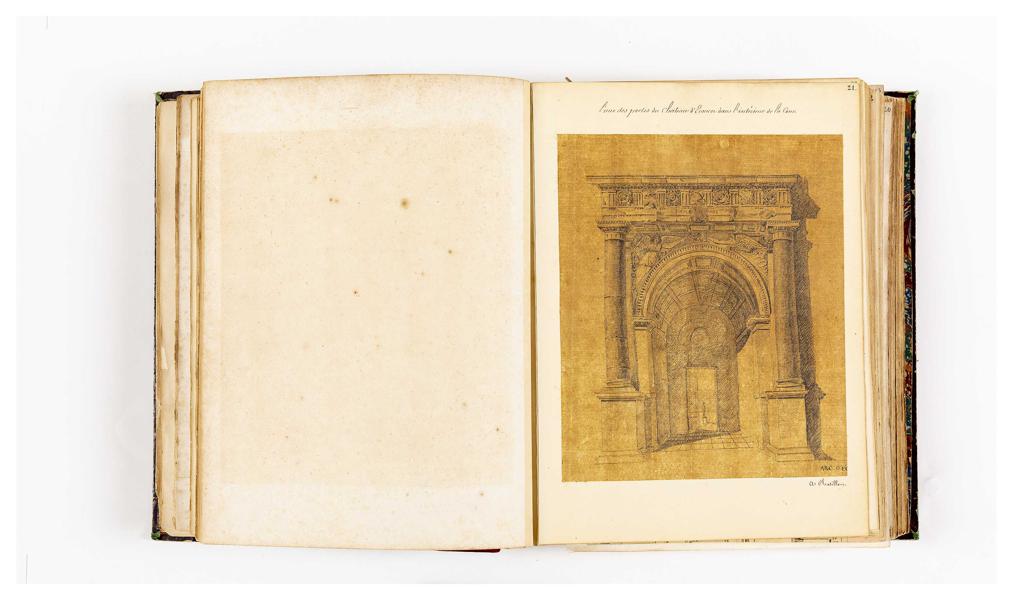 21.
l'une des portes du Chateau d'Ecouen dans l'intérieur de la Cour.
A. Chatillon.